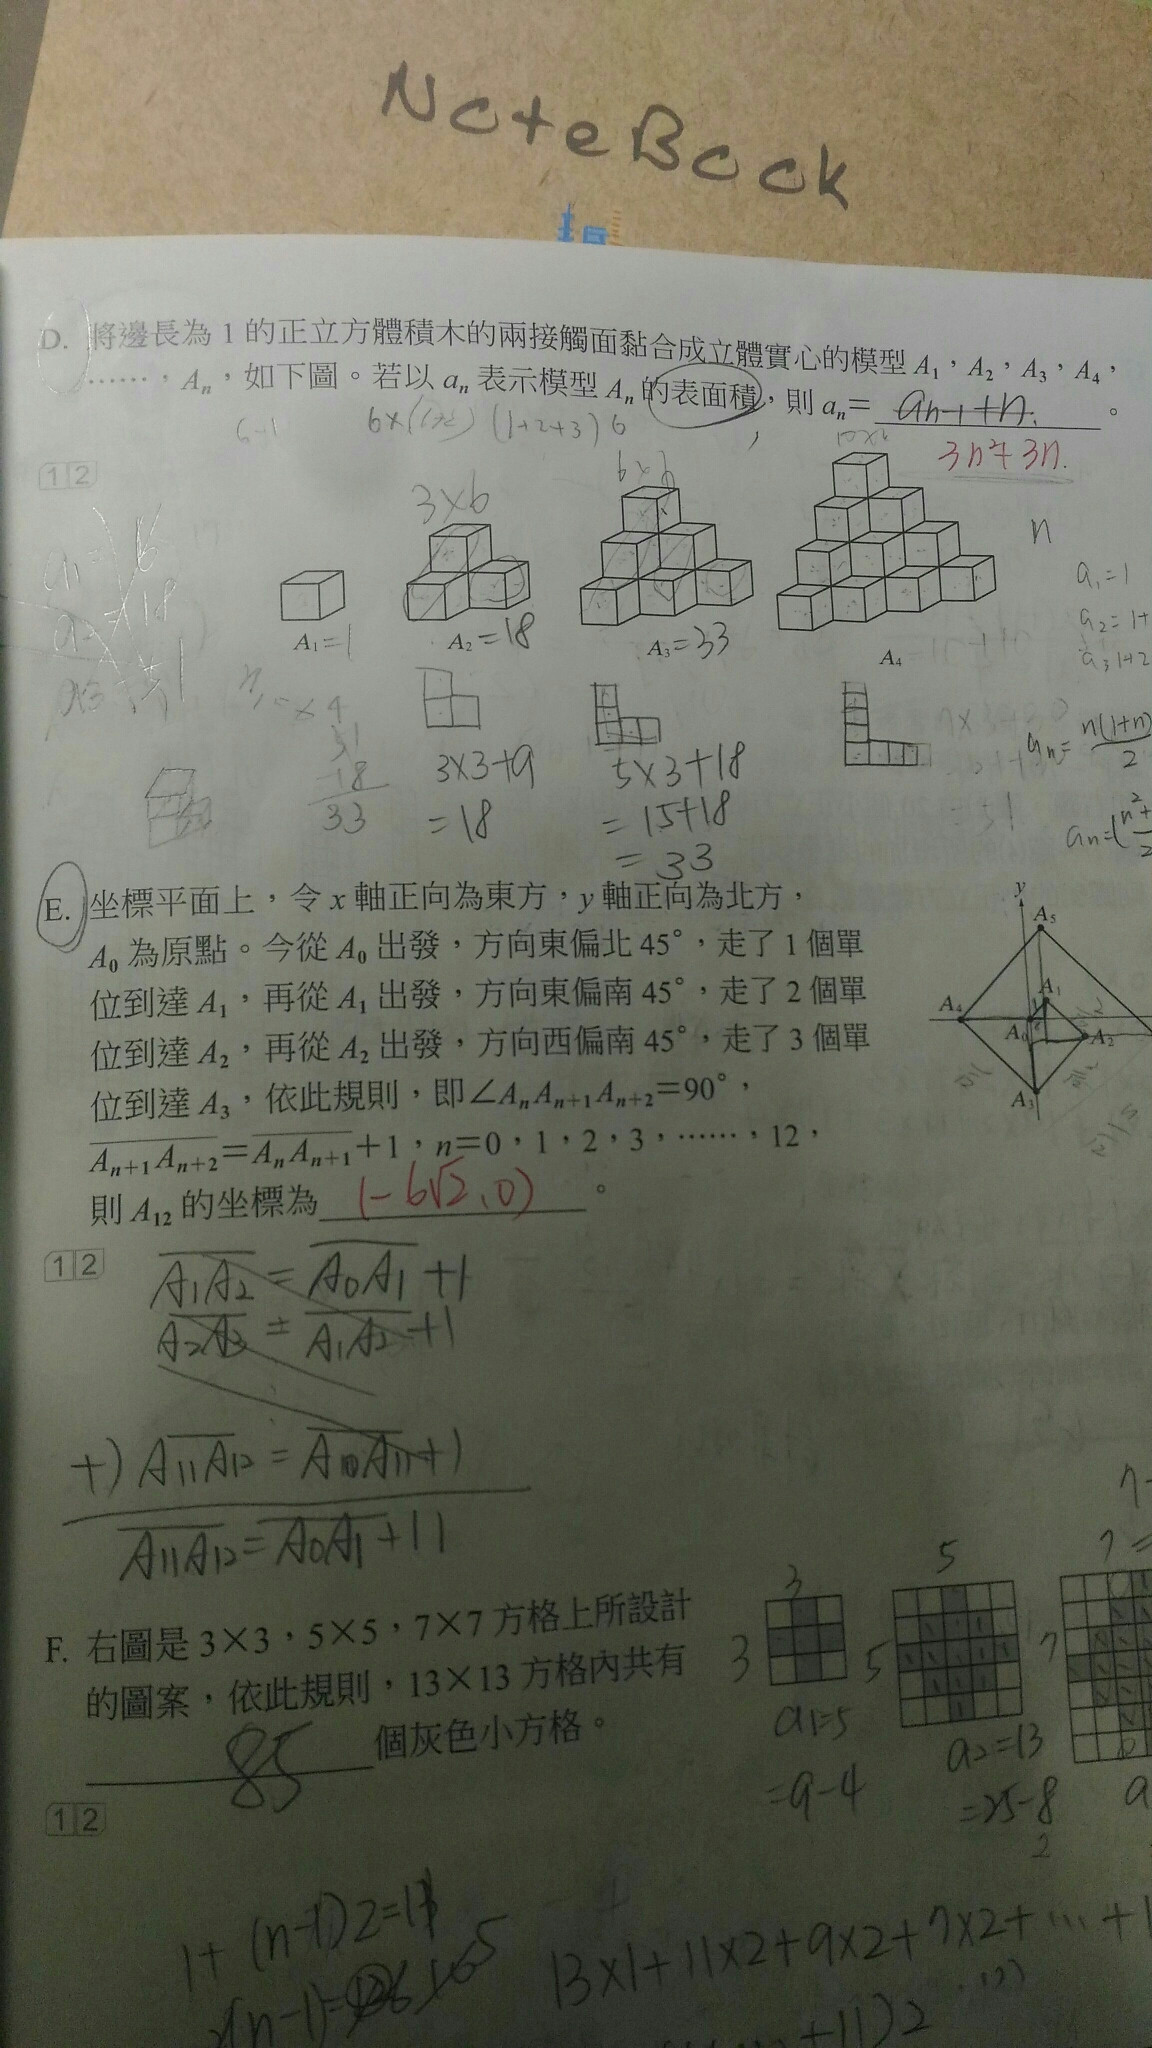 NoteBook
D. 將邊長為 1 的正立方體積木的兩接觸面黏合成立體實心的模型 A₁，A₂，A₃，A₄，
……，Aₙ，如下圖。若以 aₙ 表示模型 Aₙ 的表面積，則 aₙ= an-1+n. 。
6×(1+2) (1+2+3) 6
3n²+3n.
12
3×6
6×6
10×2
n
A₁=1
A₂=18
A₃=33
A₄
a₁=1
a₂=1+
a₃ 1+2
3×3+9
=18
5×3+18
=15+18
=33
51
18
33
an= n(1+n)/2
E. 坐標平面上，令 x 軸正向為東方，y 軸正向為北方，
A₀ 為原點。今從 A₀ 出發，方向東偏北 45°，走了 1 個單
位到達 A₁，再從 A₁ 出發，方向東偏南 45°，走了 2 個單
位到達 A₂，再從 A₂ 出發，方向西偏南 45°，走了 3 個單
位到達 A₃，依此規則，即∠AₙAₙ₊₁Aₙ₊₂=90°，
Aₙ₊₁Aₙ₊₂=AₙAₙ₊₁+1，n=0，1，2，3，……，12，
則 A₁₂ 的坐標為 (-6√2,0) 。
y
A₅
A₄
A₁
A₀
A₂
A₃
12
A₁A₂=A₀A₁+1
A₂A₃=A₁A₂+1
+) A₁₁A₁₂=A₁₀A₁₁+1
A₁₁A₁₂=A₀A₁+11
F. 右圖是 3×3，5×5，7×7 方格上所設計
的圖案，依此規則，13×13 方格內共有
85 個灰色小方格。
3
3
a₁=5
=9-4
5
5
a₂=13
=25-8
2
7
7
12
1+(n-1)2=11
13×1+11×2+9×2+7×2+…+1
+11)2